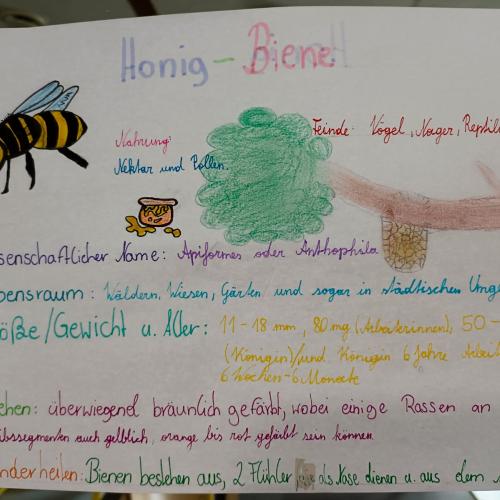 Honig-Biene
Feinde: Vögel, Nager, Reptil
Nahrung:
Nektar und Pollen.
senschaftlicher Name: Apiformes oder Anthophila
bensraum: Wäldern, Wiesen, Gärten und sogar in städtischen Umge
öße/Gewicht u. Alter: 11-18 mm, 80mg (Arbeiterinnen), 50-
(Königin)/und Königin 6 Jahre Arbei
6 Wochen-6 Monate
ehen: überwiegend bräunlich gefärbt, wobei einige Rassen an
ibssegmenten auch gelblich, orange bis rot gefärbt sein können.
nderheiten: Bienen bestehen aus, 2 Fühler die als Nase dienen u. aus dem